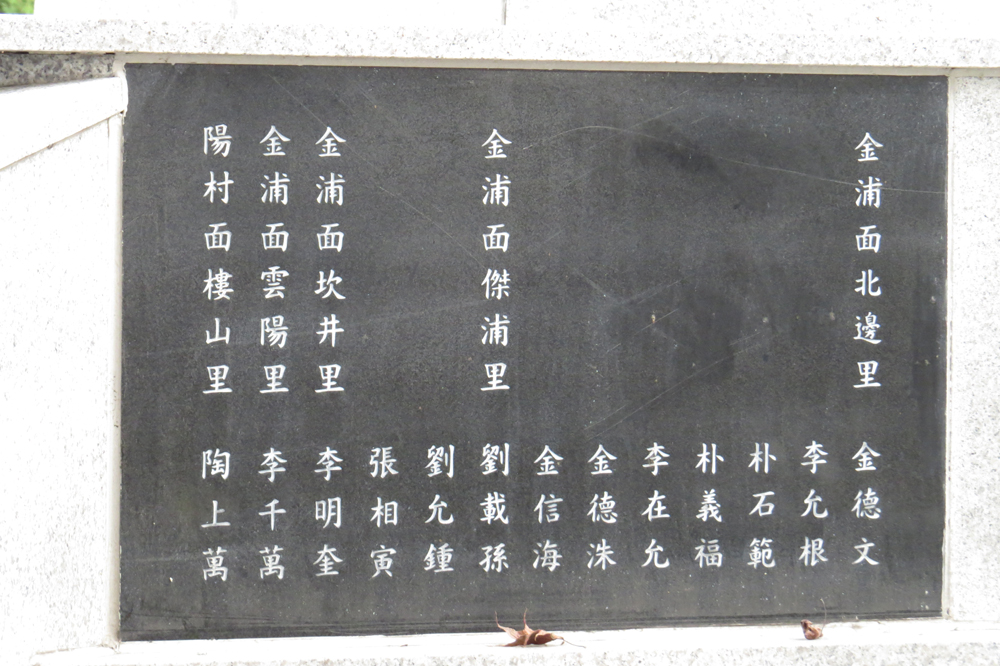 金浦面北邊里 金德文
李允根
朴石範
朴義福
李在允
金德洙
金信海
金浦面傑浦里 劉載孫
劉允鍾
張相寅
金浦面坎井里 李明奎
金浦面雲陽里 李千萬
陽村面樓山里 陶上萬